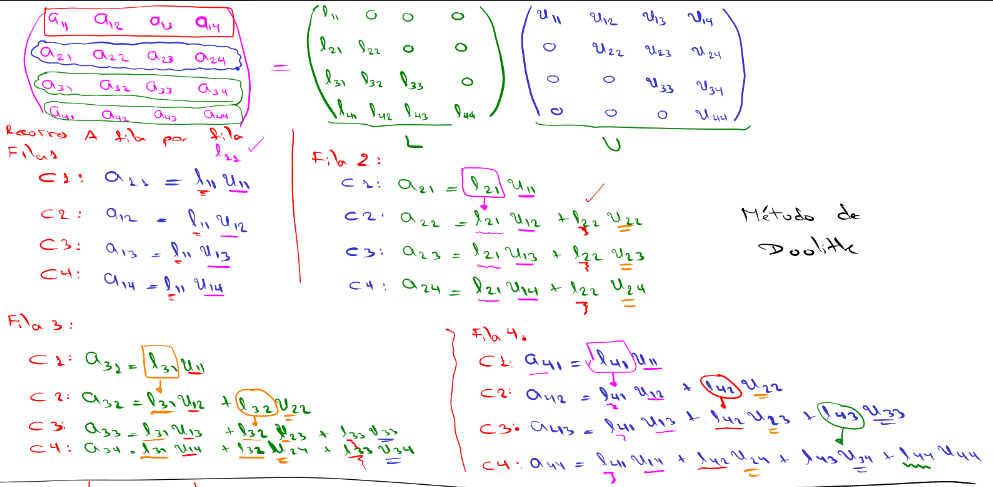 a11 a12 a13 a14
a21 a22 a23 a24
a31 a32 a33 a34
a41 a42 a43 a44
=
l11 0 0 0
l21 l22 0 0
l31 l32 l33 0
l41 l42 l43 l44
L
u11 u12 u13 u14
0 u22 u23 u24
0 0 u33 u34
0 0 0 u44
U
Recorro A fila por fila
Fila1
l11 ✓
C1: a11 = l11 u11
C2: a12 = l11 u12
C3: a13 = l11 u13
C4: a14 = l11 u14
Fila 2:
C1: a21 = l21 u11
C2: a22 = l21 u12 + l22 u22
C3: a23 = l21 u13 + l22 u23
C4: a24 = l21 u14 + l22 u24
Método de
Doolitle
Fila 3:
C1: a31 = l31 u11
C2: a32 = l31 u12 + l32 u22
C3: a33 = l31 u13 + l32 u23 + l33 u33
C4: a34 = l31 u14 + l32 u24 + l33 u34
Fila 4.
C1: a41 = l41 u11
C2: a42 = l41 u12 + l42 u22
C3: a43 = l41 u13 + l42 u23 + l43 u33
C4: a44 = l41 u14 + l42 u24 + l43 u34 + l44 u44